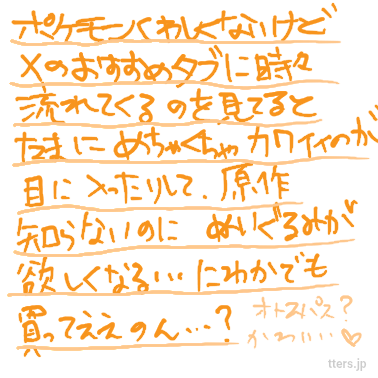 ポケモンくわしくないけど
Xのおすすめタブに時々
流れてくるのを見てると
たまにめっちゃくちゃカワイイのが
目に入ったりして、原作
知らないのに ぬいぐるみが
欲しくなる… にわかでも
買ってええのん…？
オトスパス？
かわいい♡
tters.jp